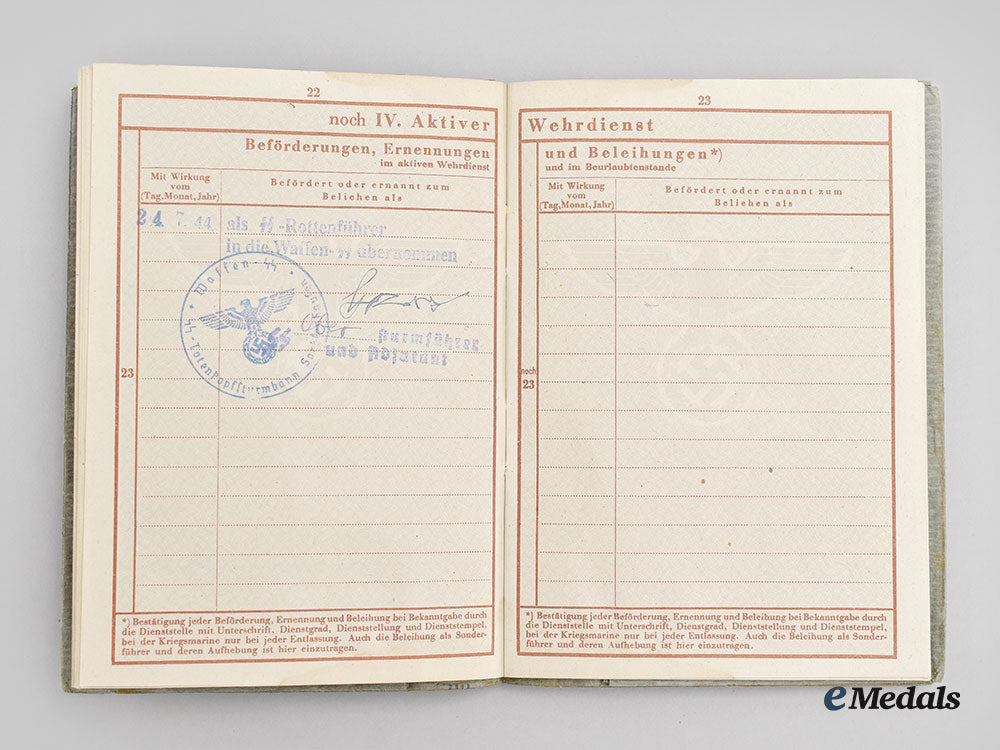 22
noch IV. Aktiver
Beförderungen, Ernennungen
im aktiven Wehrdienst
Mit Wirkung
vom
(Tag, Monat, Jahr)
Befördert oder ernannt zum
Beliehen als
24. 7. 44 als ᛋᛋ-Rottenführer
in die Waffen-ᛋᛋ übernommen
Waffen-ᛋᛋ
ᛋᛋ-Totenkopfsturmbann
Ober
Sturmführer
und Adjutant
23
*) Bestätigung jeder Beförderung, Ernennung und Beleihung bei Bekanntgabe durch
die Dienststelle mit Unterschrift, Dienstgrad, Dienststellung und Dienststempel,
bei der Kriegsmarine nur bei jeder Entlassung. Auch die Beleihung als Sonder-
führer und deren Aufhebung ist hier einzutragen.
23
Wehrdienst
und Beleihungen*)
und im Beurlaubtenstande
Mit Wirkung
vom
(Tag, Monat, Jahr)
Befördert oder ernannt zum
Beliehen als
noch
23
*) Bestätigung jeder Beförderung, Ernennung und Beleihung bei Bekanntgabe durch
die Dienststelle mit Unterschrift, Dienstgrad, Dienststellung und Dienststempel,
bei der Kriegsmarine nur bei jeder Entlassung. Auch die Beleihung als Sonder-
führer und deren Aufhebung ist hier einzutragen.
eMedals